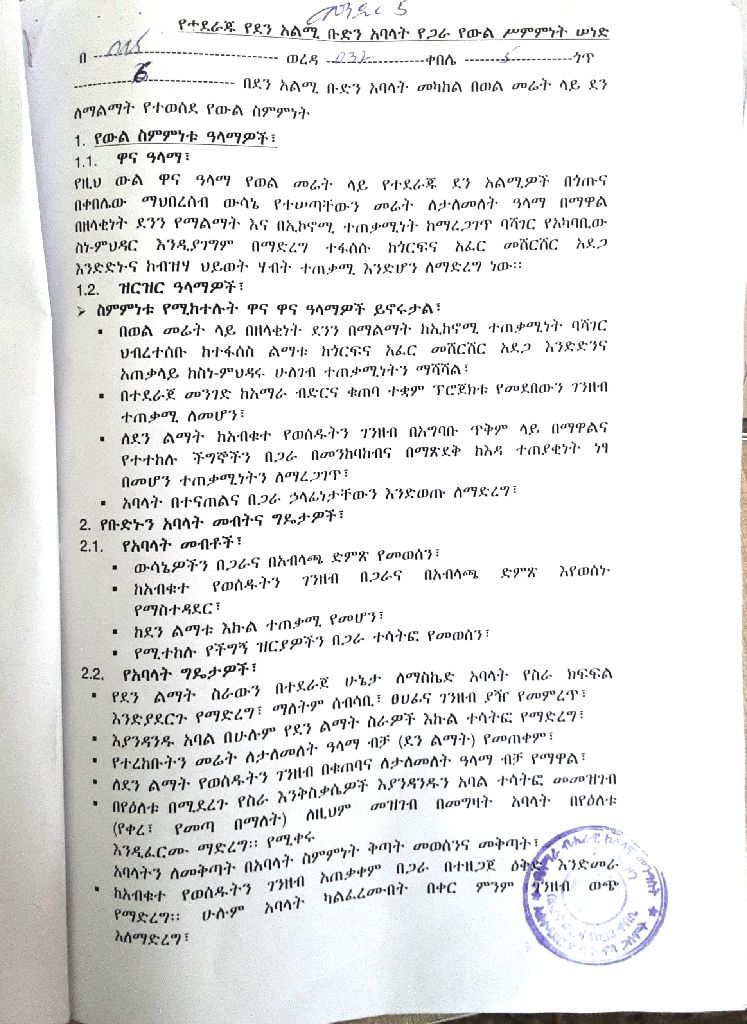 የተደራጁ የደን አልሚ ቡድን አባላት የጋራ የውል ሥምምነት ሠነድ
በ ---------- ወረዳ 032 ቀበሌ ---------- 5 ---------- ጎጥ
---------- 6 ---------- በደን አልሚ ቡድን አባላት መካከል በወል መሬት ላይ ደን
ለማልማት የተወሰደ የውል ስምምነት
1. የውል ስምምነቱ ዓላማዎች፣
1.1. ዋና ዓላማ፣
የዚህ ውል ዋና ዓላማ የወል መሬት ላይ የተደራጁ ደን አልሚዎች በጎጡና
በቀበሌው ማህበረሰብ ውሳኔ የተሠጣቸውን መሬት ለታለመለት ዓላማ በማዋል
በዘላቂነት ደንን የማልማት እና በኢኮኖሚ ተጠቃሚነት ከማረጋገጥ ባሻገር የአካባቢው
ስነ-ምህዳር እንዲያገግም በማድረግ ተፋሰሱ ከጎርፍና አፈር መሸርሸር አደጋ
እንድድኑና ከብዝሃ ህይወት ሃብት ተጠቃሚ እንድሆን ለማድረግ ነው፡፡
1.2. ዝርዝር ዓላማዎች፣
➢ ስምምነቱ የሚከተሉት ዋና ዋና ዓላማዎች ይኖሩታል፣
▪ በወል መሬት ላይ በዘላቂነት ደንን በማልማት ከኢከኖሚ ተጠቃሚነት ባሻገር
ህብረተሰቡ ከተፋሰስ ልማቱ ከጎርፍና አፈር መሸርሸር አደጋ እንድድንና
አጠቃላይ ከስነ-ምህዳሩ ሁለገብ ተጠቃሚነትን ማሻሻል፣
▪ በተደራጀ መንገድ ከአማራ ብድርና ቁጠባ ተቋም ፕሮጀክቱ የመደበውን ገንዘብ
ተጠቃሚ ለመሆን፣
▪ ለደን ልማት ከአብቁተ የወሰዱትን ገንዘብ በአግባቡ ጥቅም ላይ በማዋልና
የተተከሉ ችግኞችን በጋራ በመንከባከብና በማጽደቅ ከእዳ ተጠያቂነት ነፃ
በመሆን ተጠቃሚነትን ለማረጋገጥ፣
▪ አባላት በተናጠልና በጋራ ኃላፊነታቸውን እንድወጡ ለማድረግ፣
2. የቡድኑን አባላት መብትና ግዴታዎች፣
2.1. የአባላት መብቶች፣
▪ ውሳኔዎችን በጋራና በአብላጫ ድምጽ የመወሰን፣
▪ ከአብቁተ የወሰዱትን ገንዘብ በጋራና በአብላጫ ድምጽ እየወሰኑ
የማስተዳደር፣
▪ ከደን ልማቱ እኩል ተጠቃሚ የመሆን፣
▪ የሚተከሉ የችግኝ ዝርያዎችን በጋራ ተሳትፎ የመወሰን፣
2.2. የአባላት ግዴታዎች፣
▪ የደን ልማት ስራውን በተደራጀ ሁኔታ ለማስኬድ አባላት የስራ ክፍፍል
እንድያደርጉ የማድረግ፣ ማለትም ሰብሳቢ፣ ፀሀፊና ገንዘብ ያዥ የመምረጥ፣
▪ እያንዳንዱ አባል በሁሉም የደን ልማት ስራዎች እኩል ተሳትፎ የማድረግ፣
▪ የተረከቡትን መሬት ለታለመለት ዓላማ ብቻ (ደን ልማት) የመጠቀም፣
▪ ለደን ልማት የወሰዱትን ገንዘብ በቁጠባና ለታለመለት ዓላማ ብቻ የማዋል፣
▪ በየዕለቱ በሚደረጉ የስራ እንቅስቃሴዎች እያንዳንዱን አባል ተሳትፎ መመዝገብ
(የቀረ፣ የመጣ በማለት) ለዚህም መዝገብ በመግዛት አባላት በየዕለቱ
እንዲፈርሙ ማድረግ፡፡ የሚቀሩ
አባላትን ለመቅጣት በአባላት ስምምነት ቅጣት መወሰንና መቅጣት፣
▪ ከአብቁተ የወሰዱትን ገንዘብ አጠቃቀም በጋራ በተዘጋጀ ዕቅድ እንድመራ
የማድረግ፡፡ ሁሉም አባላት ካልፈረሙበት በቀር ምንም ገንዘብ ወጭ
አለማድረግ፣